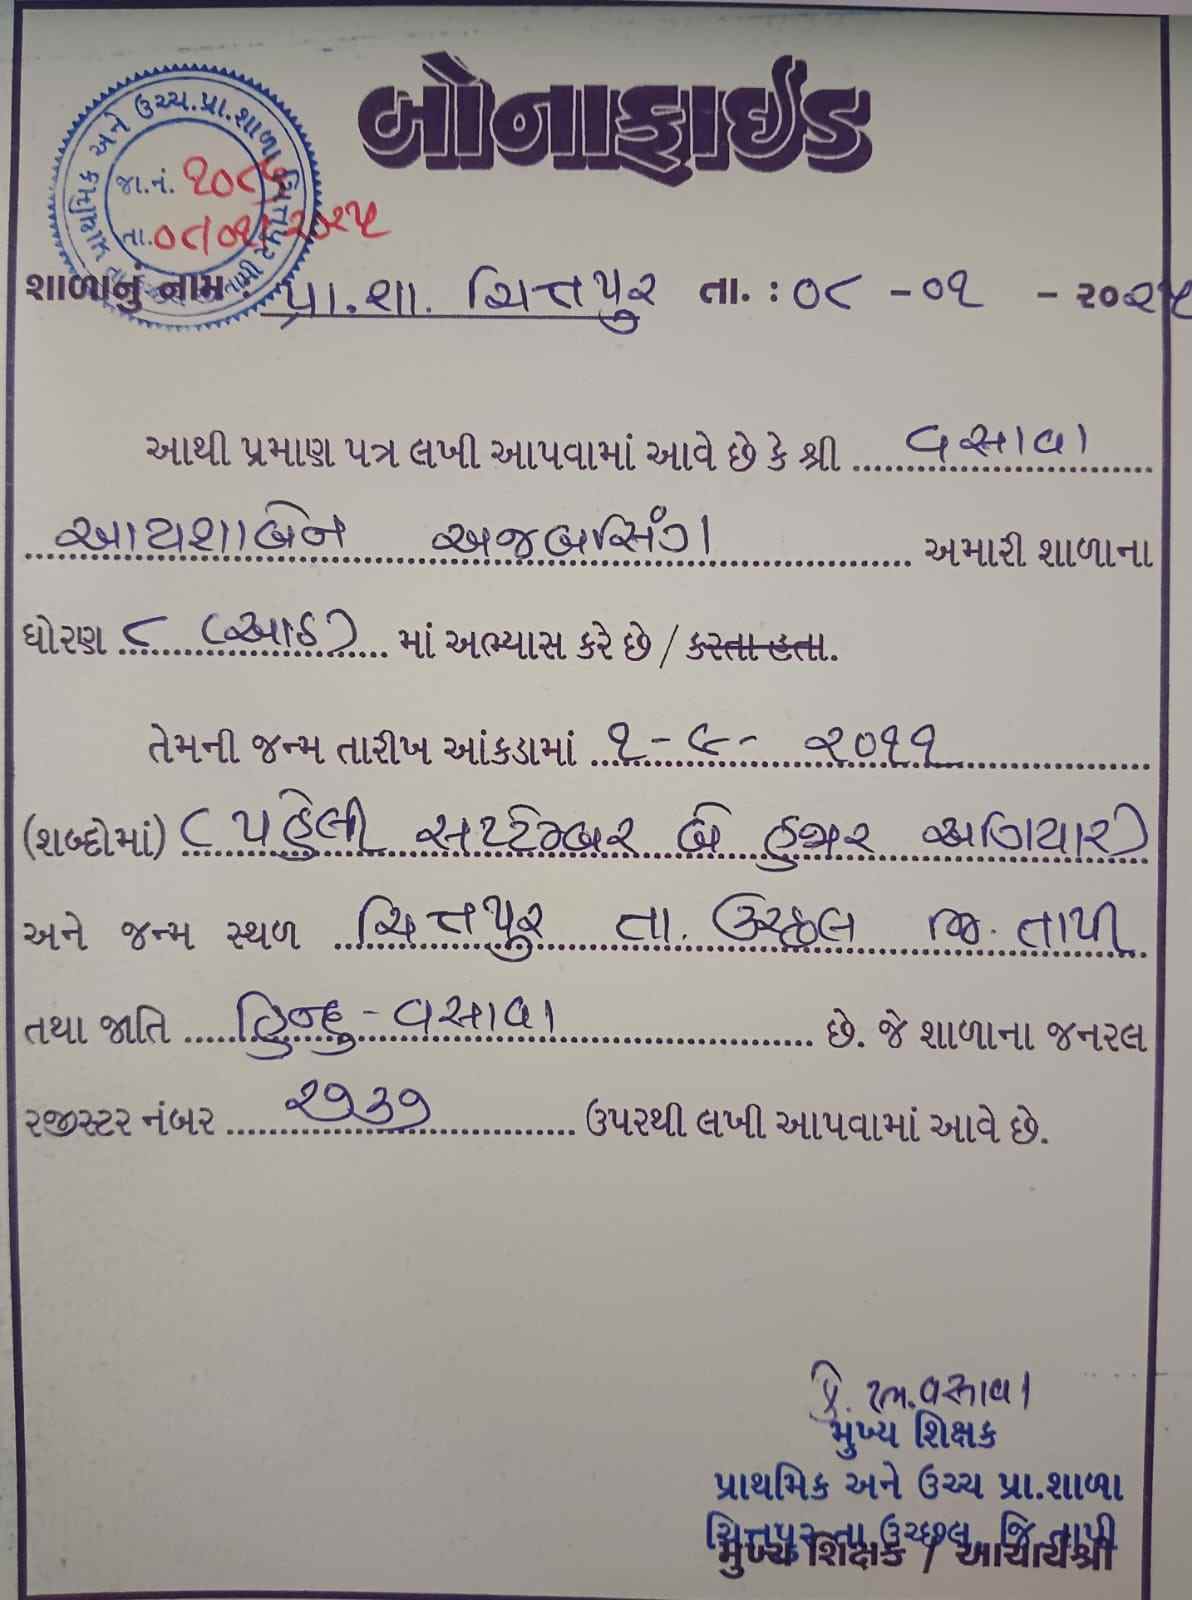 બોનાફાઈડ
પ્રાથમિક અને ઉચ્ચ.પ્રા.શાળા ચિત્તપુર
જા.નં. ૧૦૮૬
તા.૦૮/૦૧/૨૦૨૫
શાળાનું નામ : પ્રા.શા. ચિત્તપુર તા. : ૦૮ -૦૧ - ૨૦૨૫
આથી પ્રમાણ પત્ર લખી આપવામાં આવે છે કે શ્રી વસાવા
આયશાબેન અજબસિંગ અમારી શાળાના
ધોરણ ૮ (આઠ) માં અભ્યાસ કરે છે / કરતા હતા.
તેમની જન્મ તારીખ આંકડામાં ૧-૯- ૨૦૧૧
(શબ્દોમાં) (પહેલી સપ્ટેમ્બર બે હજાર અગિયાર)
અને જન્મ સ્થળ ચિત્તપુર તા. ઉચ્છલ જિ. તાપી
તથા જાતિ હિન્દુ - વસાવા છે. જે શાળાના જનરલ
રજીસ્ટર નંબર ૨૭૩૭ ઉપરથી લખી આપવામાં આવે છે.
વસાવા
મુખ્ય શિક્ષક
પ્રાથમિક અને ઉચ્ચ પ્રા.શાળા
ચિત્તપુર તા.ઉચ્છલ, જિ.તાપી
મુખ્ય શિક્ષક / આચાર્યશ્રી